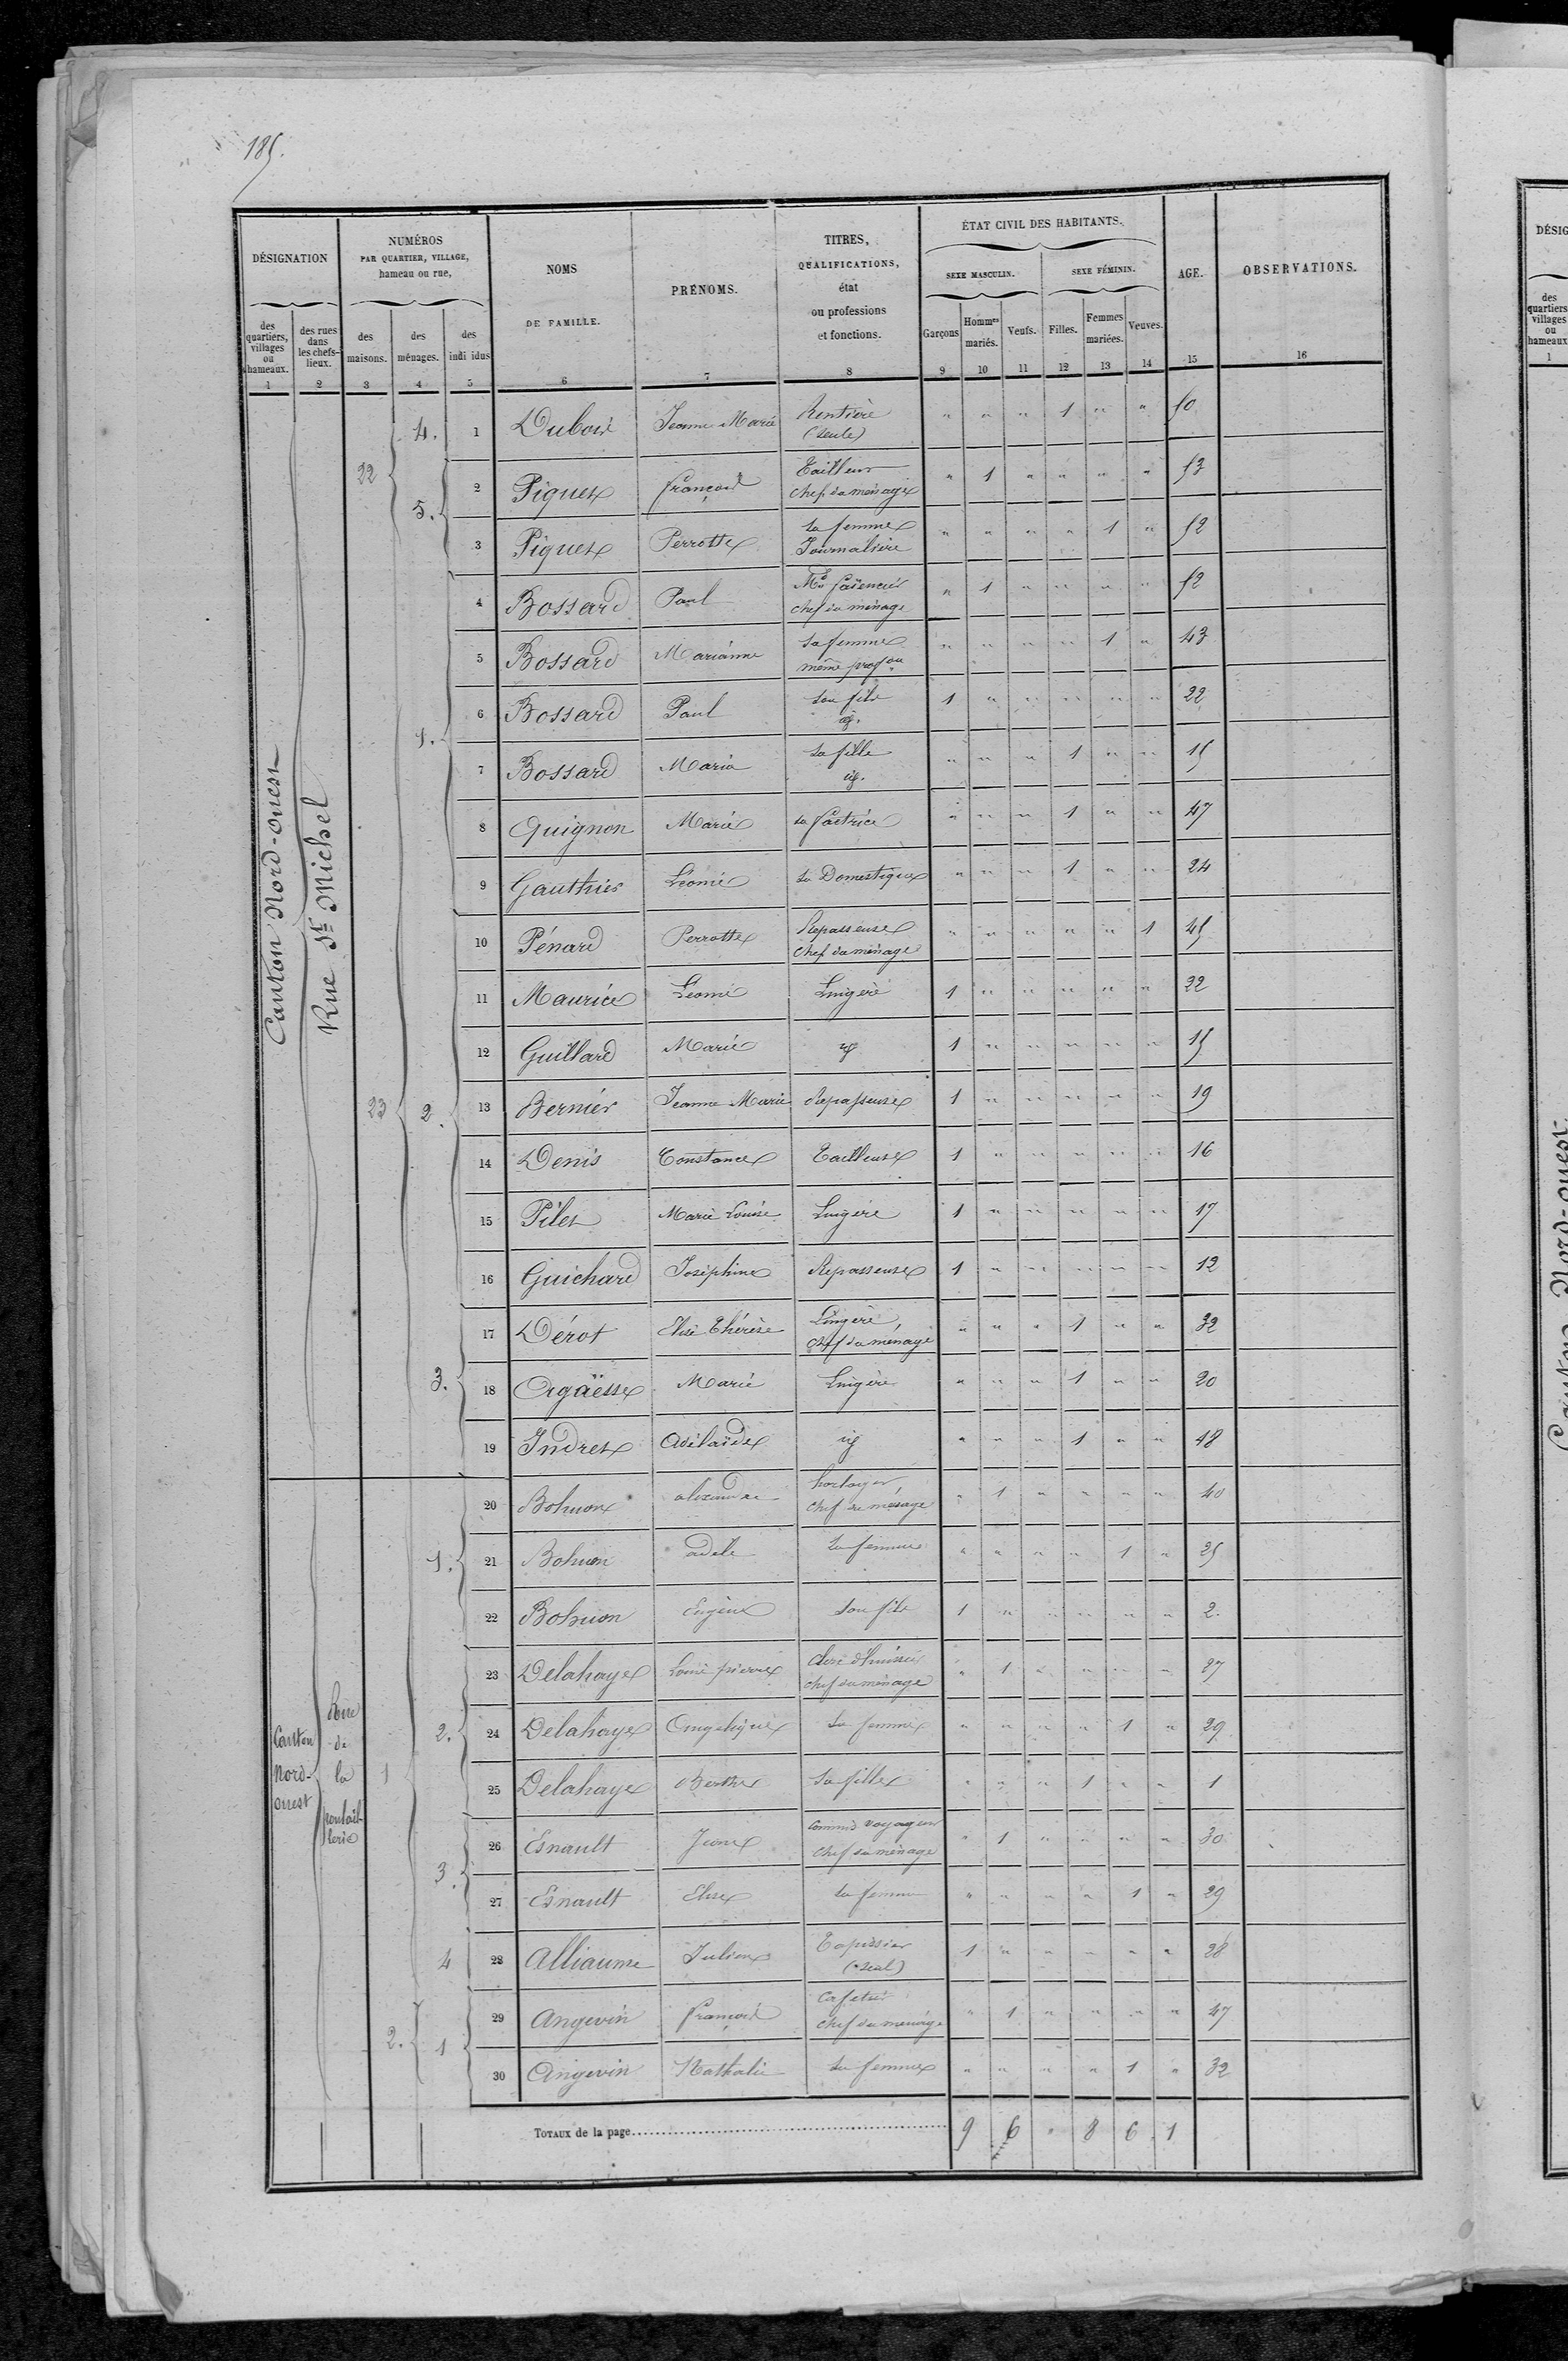 185.
DÉSIGNATION
NUMÉROS
PAR QUARTIER, VILLAGE,
hameau ou rue,
NOMS
DE FAMILLE.
PRÉNOMS.
TITRES,
QUALIFICATIONS,
état
ou professions
et fonctions.
ÉTAT CIVIL DES HABITANTS.
SEXE MASCULIN.
SEXE FÉMININ.
AGE.
OBSERVATIONS.
des quartiers, villages ou hameaux.
des rues dans les chefs-lieux.
des maisons.
des ménages.
des indi idus
Garçons
Hommes mariés.
Veufs.
Filles.
Femmes mariées.
Veuves.
1 2 3 4 5 6 7 8 9 10 11 12 13 14 15 16
Canton Nord-ouest
Rue St Michel
22 4. 1 Dubois Jeanne Marie Rentière (seule) " " " 1 " " 50
5. 2 Piquet françois Tailleur chef du ménage " 1 " " " " 53
3 Piquet Perrotte sa femme Journalière " " " " 1 " 52
23 1. 4 Bossard Paul Md faïencier chef du ménage " 1 " " " " 52
5 Bossard Marianne sa femme même profon " " " " 1 " 43
6 Bossard Paul son fils id. 1 " " " " " 22
7 Bossard Maria sa fille id. " " " 1 " " 15
8 Guignon Marie sa factrice " " " 1 " " 47
9 Gauthier Léonie sa Domestique " " " 1 " " 24
2. 10 Pénard Perrotte Repasseuse chef du ménage " " " " " 1 45
11 Maurice Léonie Lingère 1 " " " " " 22
12 Guillard Marie id 1 " " " " " 15
13 Bernier Jeanne Marie Repasseuse 1 " " " " " 19
14 Denis Constance Tailleuse 1 " " " " " 16
15 Pilet Marie Louise Lingère 1 " " " " " 17
16 Guichard Joséphine Repasseuse 1 " " " " " 12
3. 17 Dérot Elise Thérèse Lingère chef du ménage " " " 1 " " 32
18 Orgaësse Marie Lingère " " " 1 " " 20
19 Indret Adélaïde id " " " 1 " " 18
Canton Nord-ouest
Rue de la
1 1. 20 Bohuon alexandre horloger chef du ménage " 1 " " " " 40
21 Bohuon adele sa femme " " " " 1 " 25
22 Bohuon Eugène son fils 1 " " " " " 2.
2. 23 Delahaye Louis pierre clerc d'huissier chef du ménage " 1 " " " " 37
24 Delahaye Angelique sa femme " " " " 1 " 29
25 Delahaye Berthe sa fille " " " 1 " " 1
3. 26 Esnault commis voyageur chef du ménage " 1 " " " " 30
27 Esnault Elise sa femme " " " " 1 " 29
4 28 Alliaume Julien Tapissier (seul) 1 " " " " " 28
2. 1 29 Angevin françois Cafetier chef du ménage " 1 " " " " 47
30 Angevin Nathalie sa femme " " " " 1 " 32
TOTAUX de la page 9 6 " 8 6 1
DÉSIG
des
quartiers
villages
ou
hameaux
1
Canton Nord-ouest